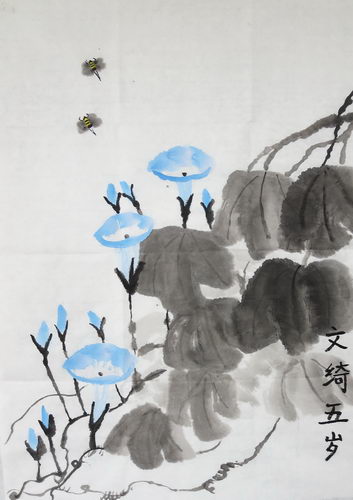 文绮五岁